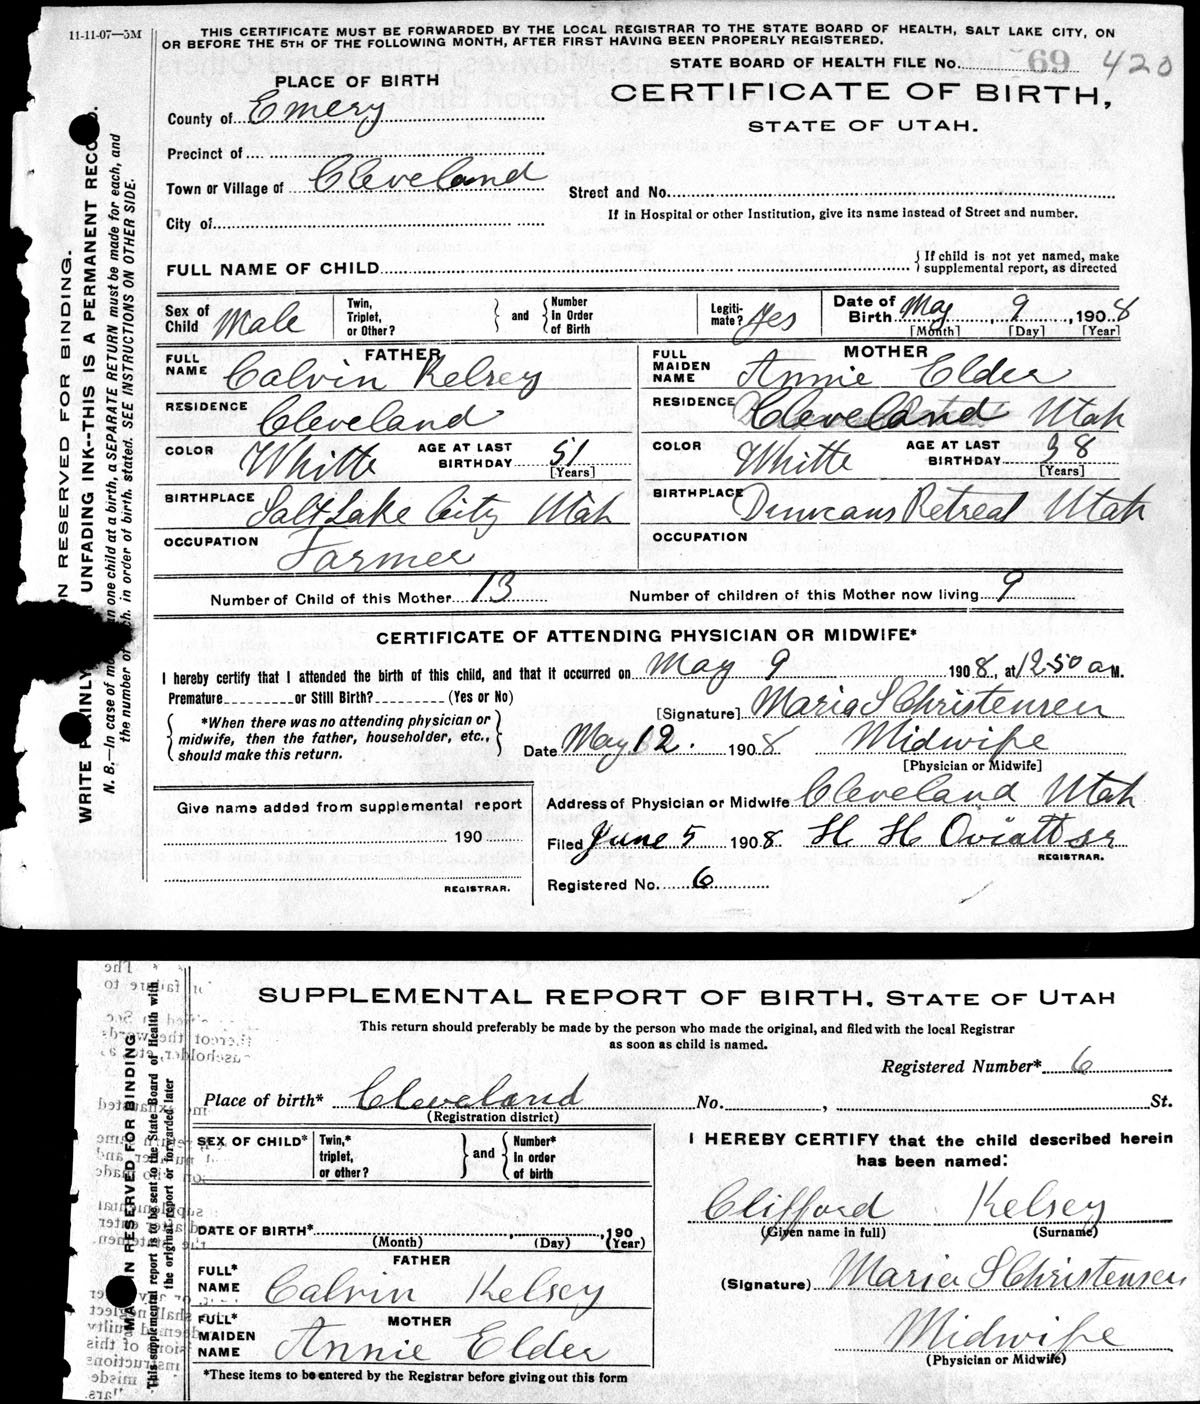 11-11-07—5M
THIS CERTIFICATE MUST BE FORWARDED BY THE LOCAL REGISTRAR TO THE STATE BOARD OF HEALTH, SALT LAKE CITY, ON
OR BEFORE THE 5TH OF THE FOLLOWING MONTH, AFTER FIRST HAVING BEEN PROPERLY REGISTERED.
STATE BOARD OF HEALTH FILE No. 69 420
PLACE OF BIRTH
CERTIFICATE OF BIRTH,
STATE OF UTAH.
County of Emery
Precinct of
Town or Village of Cleveland
Street and No.
City of
If in Hospital or other Institution, give its name instead of Street and number.
FULL NAME OF CHILD
{ If child is not yet named, make
supplemental report, as directed
Sex of Child Male
Twin, Triplet, or Other? } and { Number In Order of Birth
Legiti-mate? Yes
Date of Birth May 9, 1908
[Month] [Day] [Year]
FATHER
FULL NAME Calvin Kelsey
RESIDENCE Cleveland
COLOR Whitte AGE AT LAST BIRTHDAY 51 [Years]
BIRTHPLACE Salt Lake City Utah
OCCUPATION Farmer
MOTHER
FULL MAIDEN NAME Annie Elder
RESIDENCE Cleveland Utah
COLOR Whitte AGE AT LAST BIRTHDAY 38 [Years]
BIRTHPLACE Duncans Retreat Utah
OCCUPATION
Number of Child of this Mother 13 Number of children of this Mother now living 9
CERTIFICATE OF ATTENDING PHYSICIAN OR MIDWIFE*
I hereby certify that I attended the birth of this child, and that it occurred on May 9 1908, at 12-50 a M.
Premature or Still Birth? (Yes or No)
[Signature] Maria S Christensen
{ *When there was no attending physician or
midwife, then the father, householder, etc.,
should make this return. }
Date May 12. 1908 Midwife
[Physician or Midwife]
Give name added from supplemental report
190
REGISTRAR.
Address of Physician or Midwife Cleveland Utah
Filed June 5 1908. H H Oviatt sr
REGISTRAR.
Registered No. 6
N RESERVED FOR BINDING.
WRITE UNFADING INK--THIS IS A PERMANENT
N. B.—In case of one child at a birth, a SEPARATE RETURN must be made for each, and
the number of in order of birth, stated. SEE INSTRUCTIONS ON OTHER SIDE.
SUPPLEMENTAL REPORT OF BIRTH, STATE OF UTAH
This return should preferably be made by the person who made the original, and filed with the local Registrar
as soon as child is named.
Registered Number* 6
Place of birth* Cleveland No. , St.
(Registration district)
SEX OF CHILD* Twin,* triplet, or other? } and { Number* In order of birth
DATE OF BIRTH* , 190
(Month) (Day) (Year)
FATHER
FULL* NAME Calvin Kelsey
MOTHER
FULL* MAIDEN NAME Annie Elder
*These items to be entered by the Registrar before giving out this form
I HEREBY CERTIFY that the child described herein
has been named:
Clifford Kelsey
(Given name in full) (Surname)
(Signature) Maria S Christensen
Midwife
(Physician or Midwife)
IN RESERVED FOR BINDING
This supplemental report is to be sent to the State Board of Health with
the original report or forwarded later